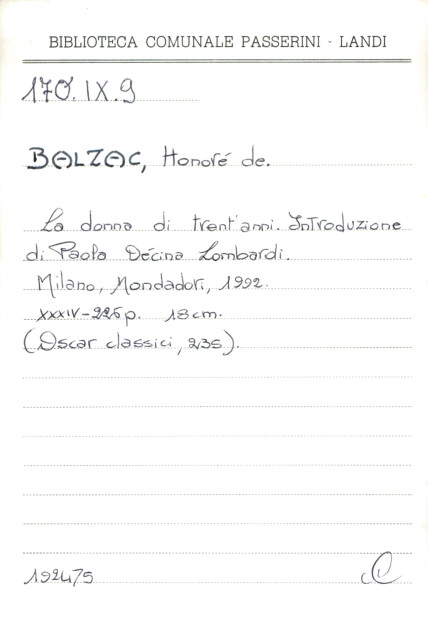 BIBLIOTECA COMUNALE PASSERINI - LANDI
170.IX.9
BALZAC, Honoré de.
La donna di trent'anni. Introduzione
di Paola Dècina Lombardi.
Milano, Mondadori, 1992.
XXXIV-225 p. 18 cm.
(Oscar classici, 235).
192475